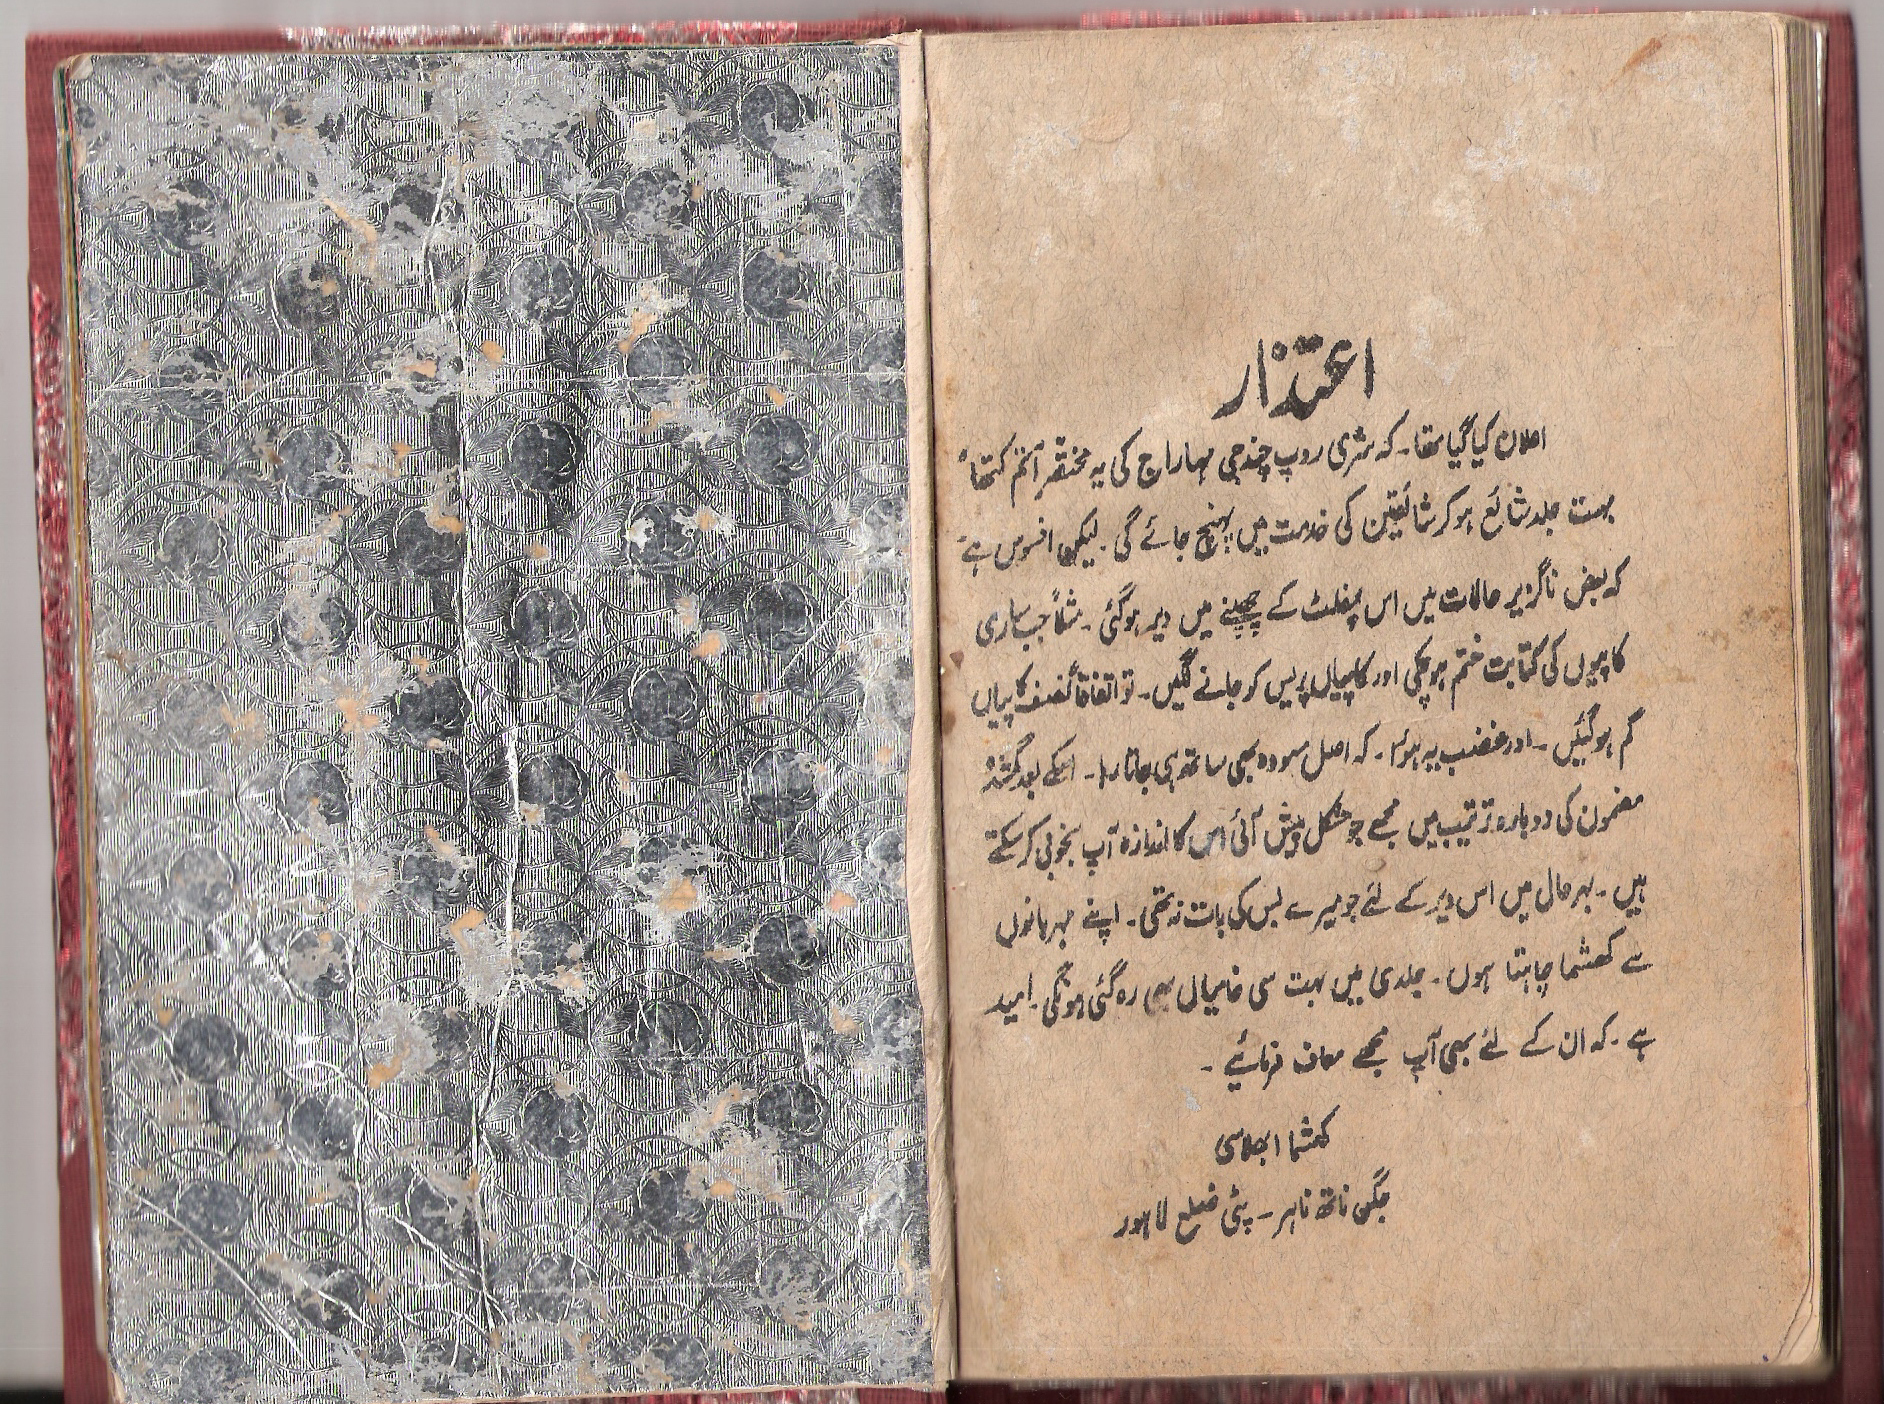 اعتذار
اعلان کیا گیا تھا۔ کہ شری روپ چند جی مہاراج کی یہ مختصر آتم کتھا
بہت جلد شائع ہو کر شائقین کی خدمت میں پہنچ جائے گی۔ لیکن افسوس ہے
کہ بعض ناگزیر حالات میں اس پمفلٹ کے چھپنے میں دیر ہو گئی۔ مثلاً جب ساری
کاپیوں کی کتابت ختم ہو چکی اور کاپیاں پریس کو جانے لگیں۔ تو اتفاقاً نصف کاپیاں
گم ہو گئیں۔ اور غضب یہ ہوا۔ کہ اصل مسودہ بھی ساتھ ہی جاتا رہا۔ اسکے بعد گمشدہ
مضمون کی دوبارہ ترتیب میں مجھے جو مشکل پیش آئی اس کا اندازہ آپ بخوبی کر سکتے
ہیں۔ بہر حال میں اس دیر کے لئے جو میرے بس کی بات نہ تھی۔ اپنے مہربانوں
سے کھشما چاہتا ہوں۔ جلدی میں بہت سی خامیاں بھی رہ گئی ہونگی۔ امید
ہے۔ کہ ان کے لئے بھی آپ مجھے معاف فرمائیے۔
کھشما ابھلاسی
جگن ناتھ ناہر۔ پٹی ضلع لاہور